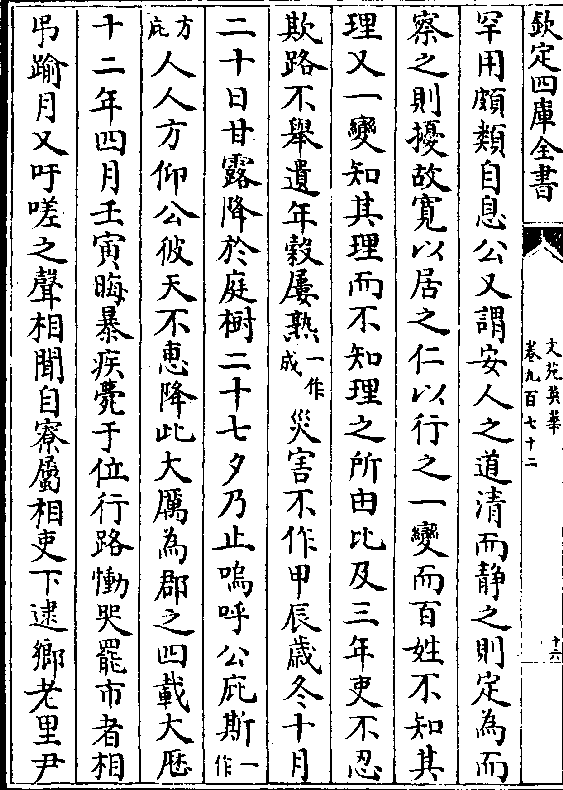 欽定四庫全書
文苑英華
卷九百七十二
十六
罕用頗類自息公又謂安人之道清而静之則定為而
察之則擾故寛以居之仁以行之一變而百姓不知其
理又一變知其理而不知理之所由比及三年吏不忍
欺路不舉遺年榖屢熟一作成災害不作甲辰歲冬十月
二十日甘露降於庭樹二十七夕乃止嗚呼公庇斯一作
方庇人人方仰公彼天不惠降此大厲為郡之四載大厯
十二年四月壬寅晦暴疾薨于位行路慟哭罷市者相
弔踰月又吁嗟之聲相聞自寮屬相吏下逮鄉老里尹